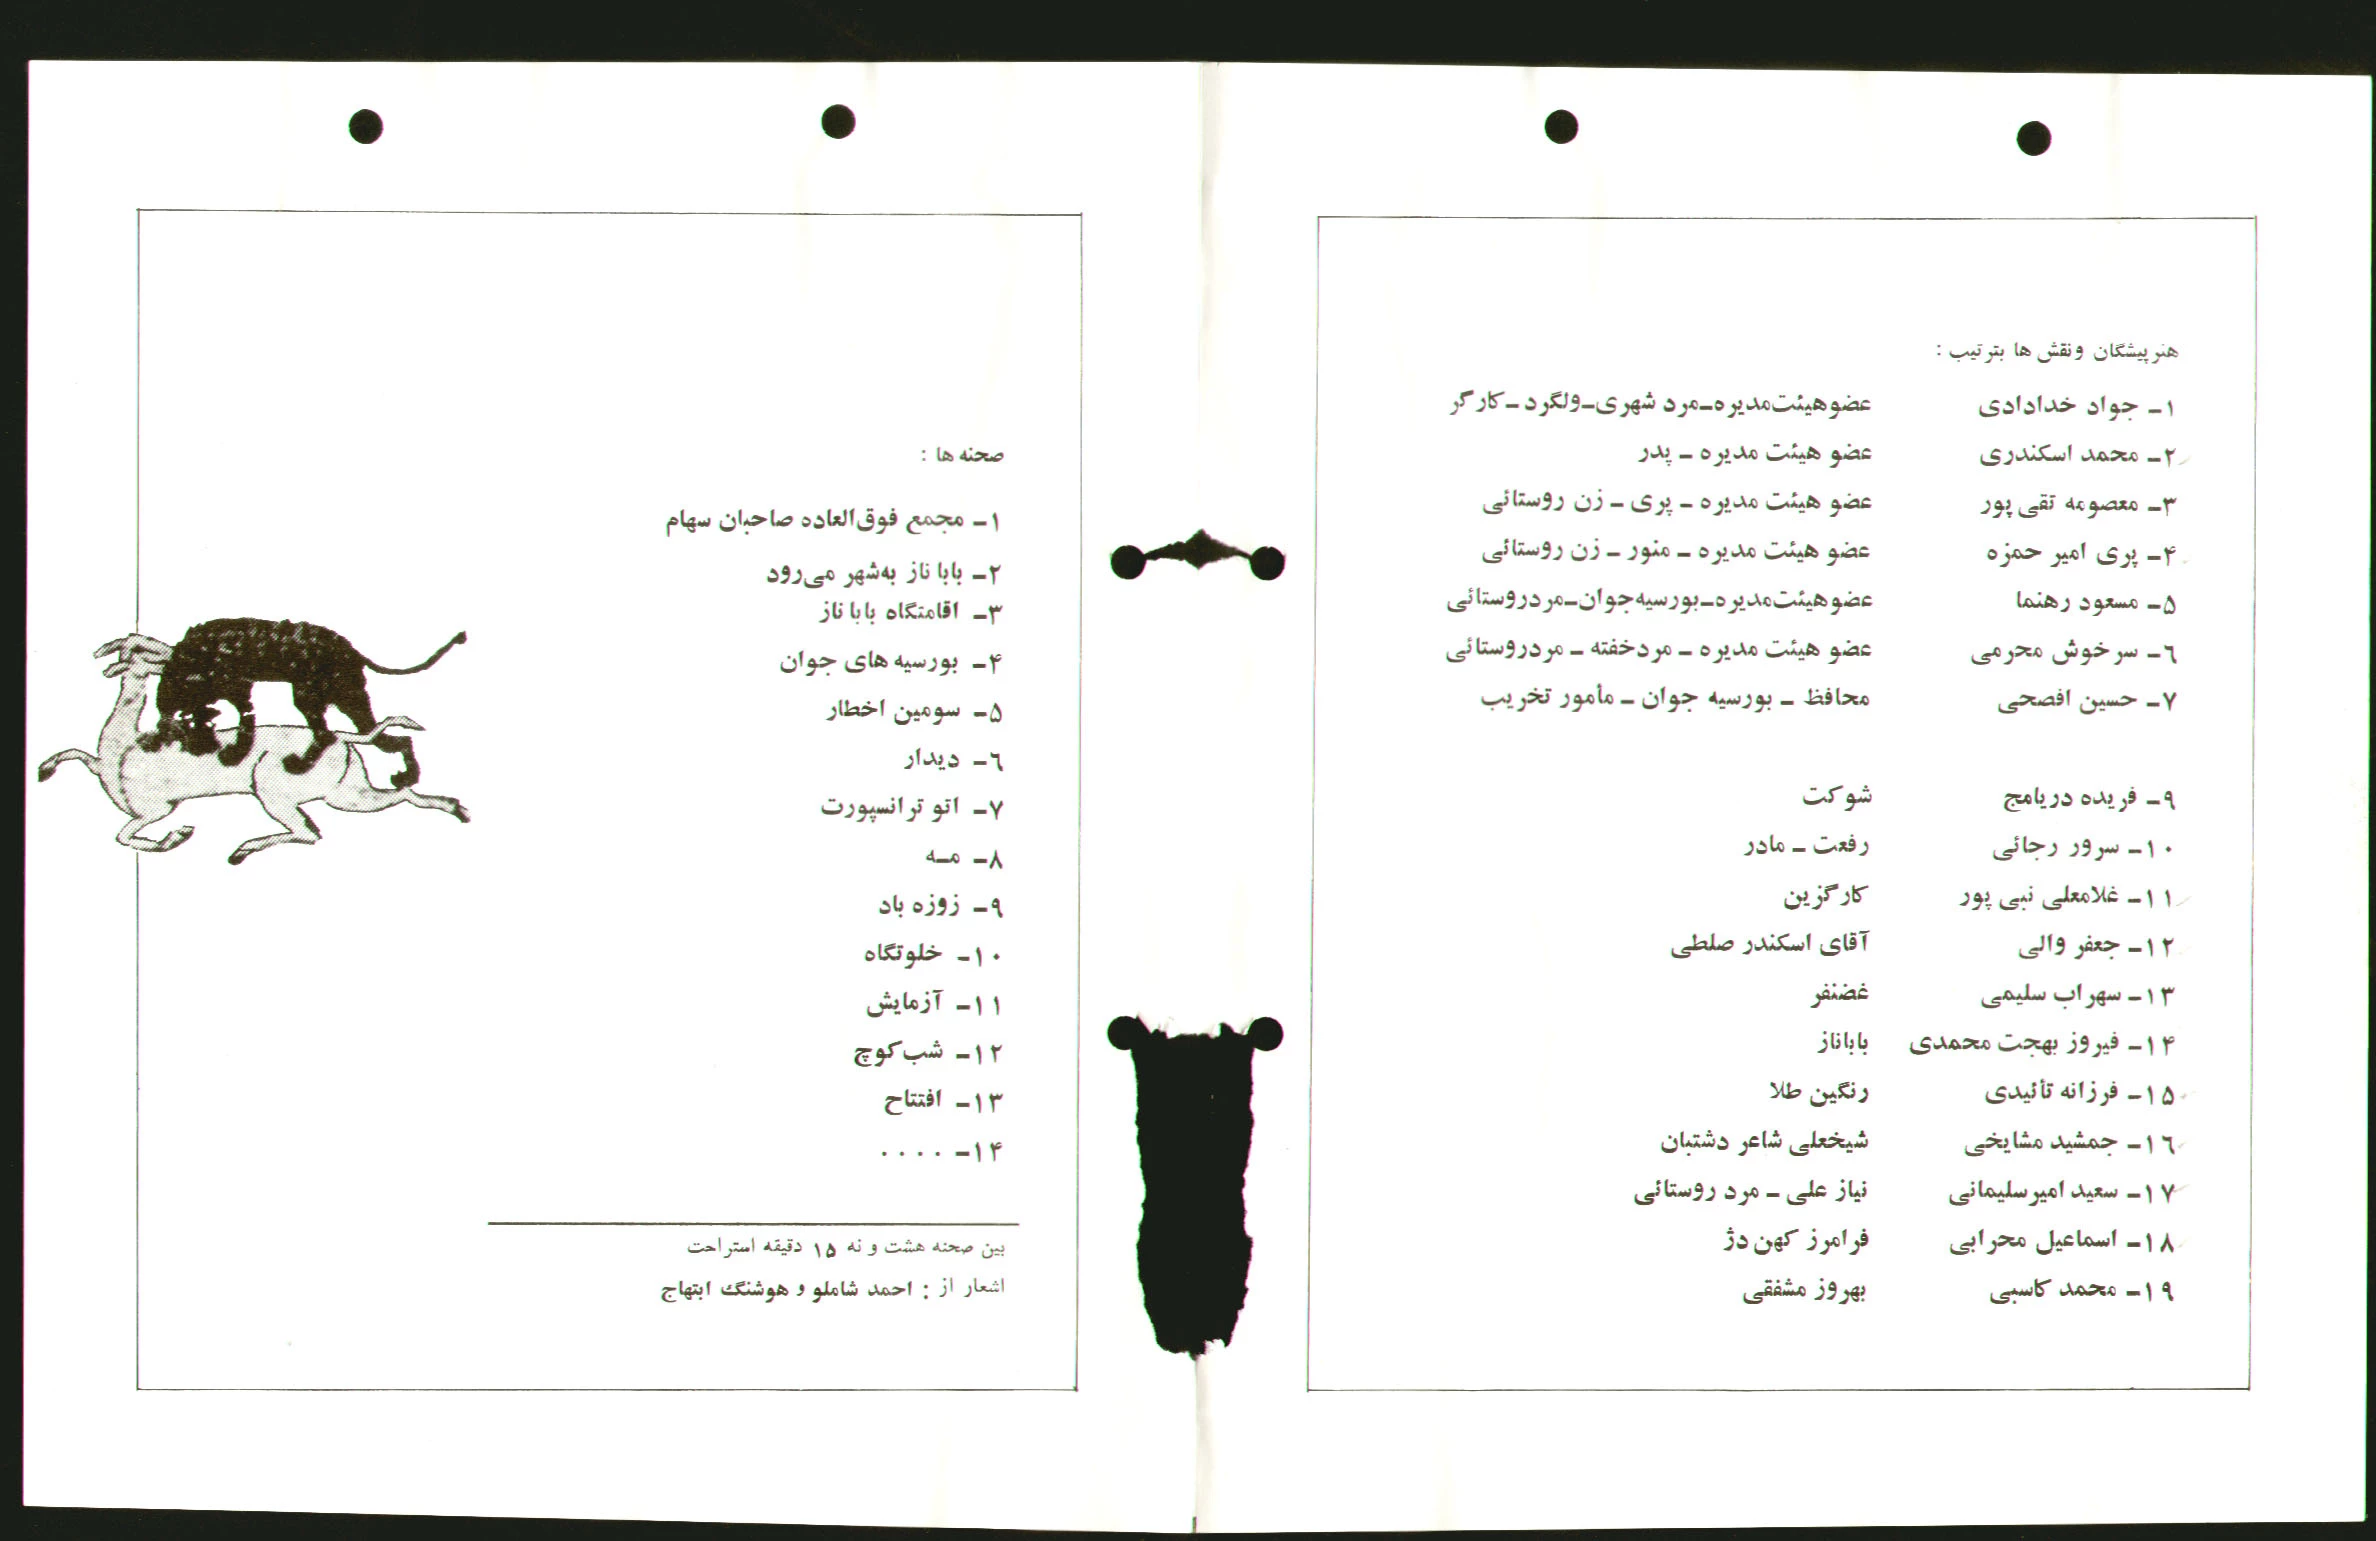 هنرپیشگان ونقش ها بترتیب :
۱- جواد خدادادی عضوهیئت‌مدیره-مرد شهری-ولگرد-کارگر
۲- محمد اسکندری عضو هیئت مدیره - پدر
۳- معصومه تقی پور عضو هیئت مدیره - پری - زن روستائی
۴- پری امیر حمزه عضو هیئت مدیره - منور - زن روستائی
۵- مسعود رهنما عضوهیئت‌مدیره-بورسیه‌جوان-مردروستائی
۶- سرخوش محرمی عضو هیئت مدیره - مردخفته - مردروستائی
۷- حسین افصحی محافظ - بورسیه جوان - مأمور تخریب
۹- فریده دریامج شوکت
۱۰- سرور رجائی رفعت - مادر
۱۱- غلامعلی نبی پور کارگزین
۱۲- جعفر والی آقای اسکندر صلطی
۱۳- سهراب سلیمی غضنفر
۱۴- فیروز بهجت محمدی باباناز
۱۵- فرزانه تأئیدی رنگین طلا
۱۶- جمشید مشایخی شیخعلی شاعر دشتبان
۱۷- سعید امیرسلیمانی نیاز علی - مرد روستائی
۱۸- اسماعیل محرابی فرامرز کهن دژ
۱۹- محمد کاسبی بهروز مشفقی
صحنه ها :
۱- مجمع فوق‌العاده صاحبان سهام
۲- بابا ناز به‌شهر می‌رود
۳- اقامتگاه بابا ناز
۴- بورسیه های جوان
۵- سومین اخطار
۶- دیدار
۷- اتو ترانسپورت
۸- مـه
۹- زوزه باد
۱۰- خلوتگاه
۱۱- آزمایش
۱۲- شب‌کوچ
۱۳- افتتاح
۱۴- . . . .
بین صحنه هشت و نه ۱۵ دقیقه استراحت
اشعار از : احمد شاملو و هوشنگ ابتهاج